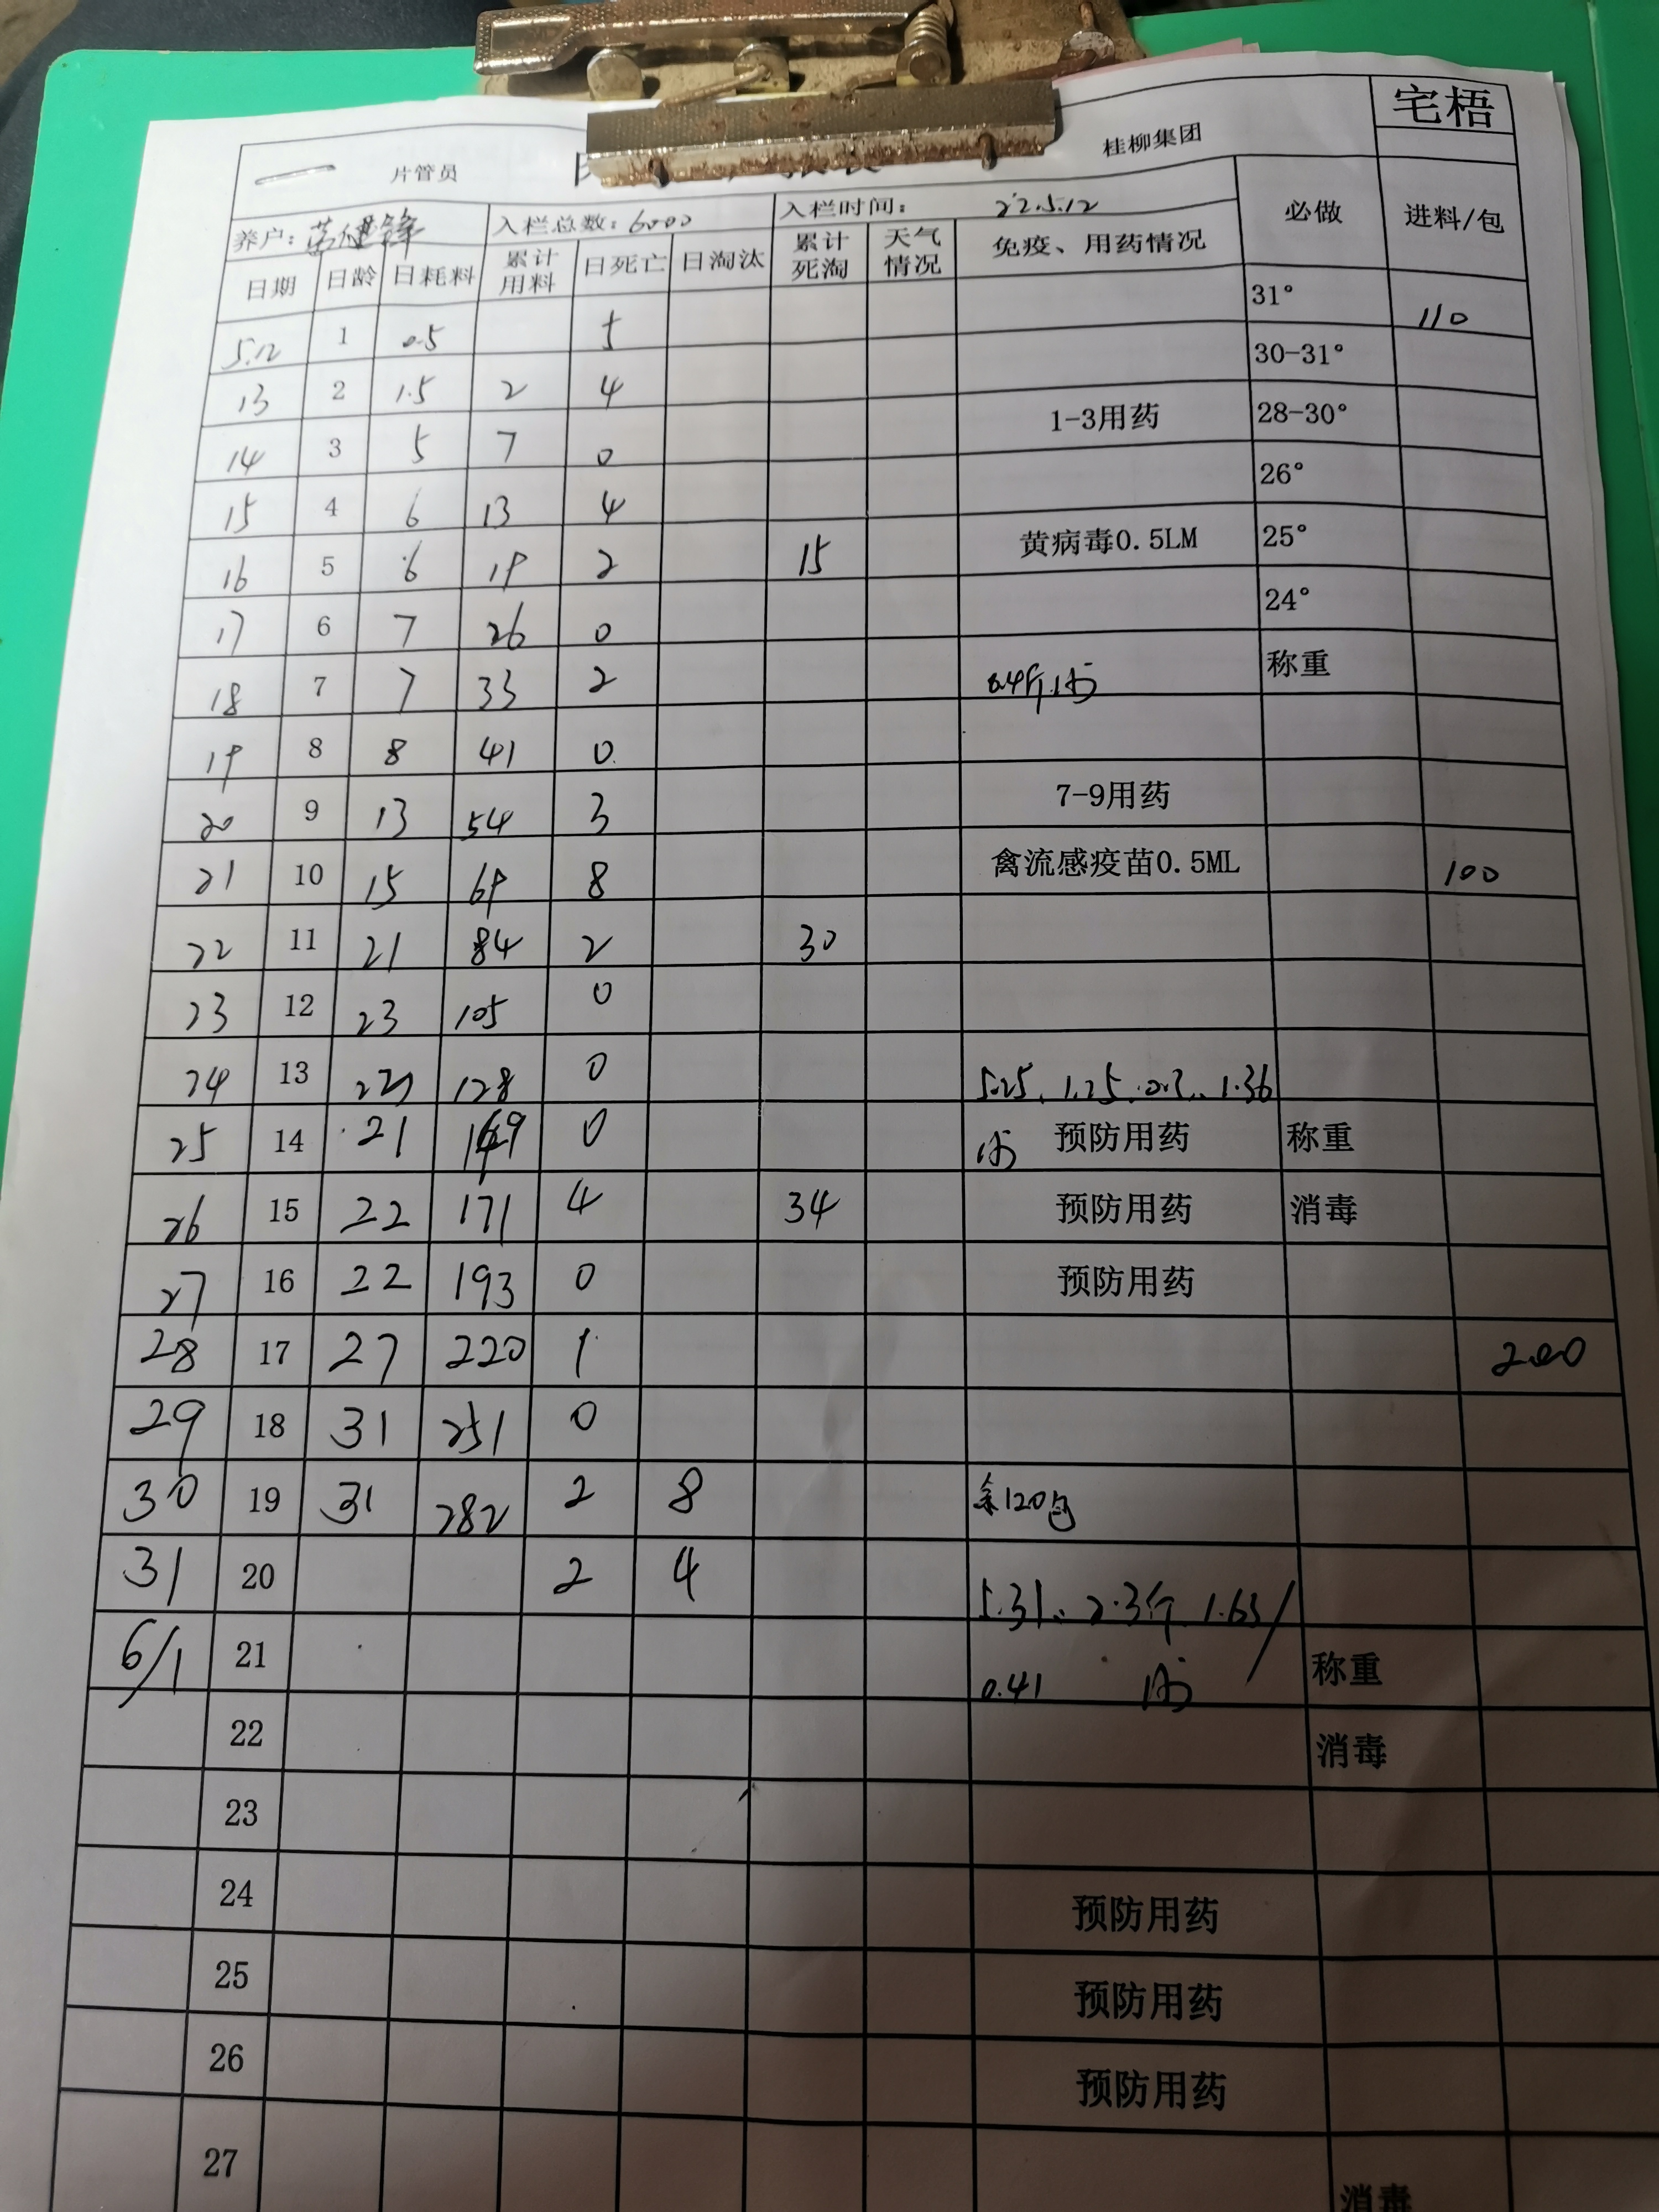 宅梧
片管员 桂柳集团
养户: 入栏总数: 6000 入栏时间: 22.5.12 必做 进料/包
日期 日龄 日耗料 累计用料 日死亡 日淘汰 累计死淘 天气情况 免疫、用药情况
5.12 1 0.5 5 31° 110
13 2 1.5 2 4 30-31°
14 3 5 7 0 1-3用药 28-30°
15 4 6 13 4 26°
16 5 6 19 2 15 黄病毒0.5LM 25°
17 6 7 26 0 24°
18 7 7 33 2 0.4斤 称重
19 8 8 41 0
20 9 13 54 3 7-9用药
21 10 15 69 8 禽流感疫苗0.5ML 100
22 11 21 84 2 30
23 12 23 105 0
24 13 128 0 5.25 1.36
25 14 21 0 预防用药 称重
26 15 22 171 4 34 预防用药 消毒
27 16 22 193 0 预防用药
28 17 27 220 1 200
29 18 31 251 0
30 19 31 282 2 8 余120包
31 20 2 4 5.31、2.3斤 1.63/
6/1 21 0.41 称重
22 消毒
23
24 预防用药
25 预防用药
26 预防用药
27 消毒